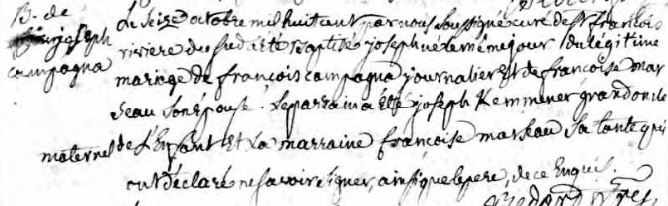 B. de
joseph
campagna
Le Seize octobre mil huit cent par nous soussigné curé de St françois
riviere du sud a été Baptisé joseph né le même jour du légitime
mariage de françois campagna journalier Et de francoise mar
seau son épouse. Le parrain a Eté joseph Kemmener grand oncle
maternel de L'Enfant Et La marraine françoise marseau Sa tante qui
ont déclaré ne savoir signer, ainsi que le pere, de ce Enquis.
Bedard Ptre